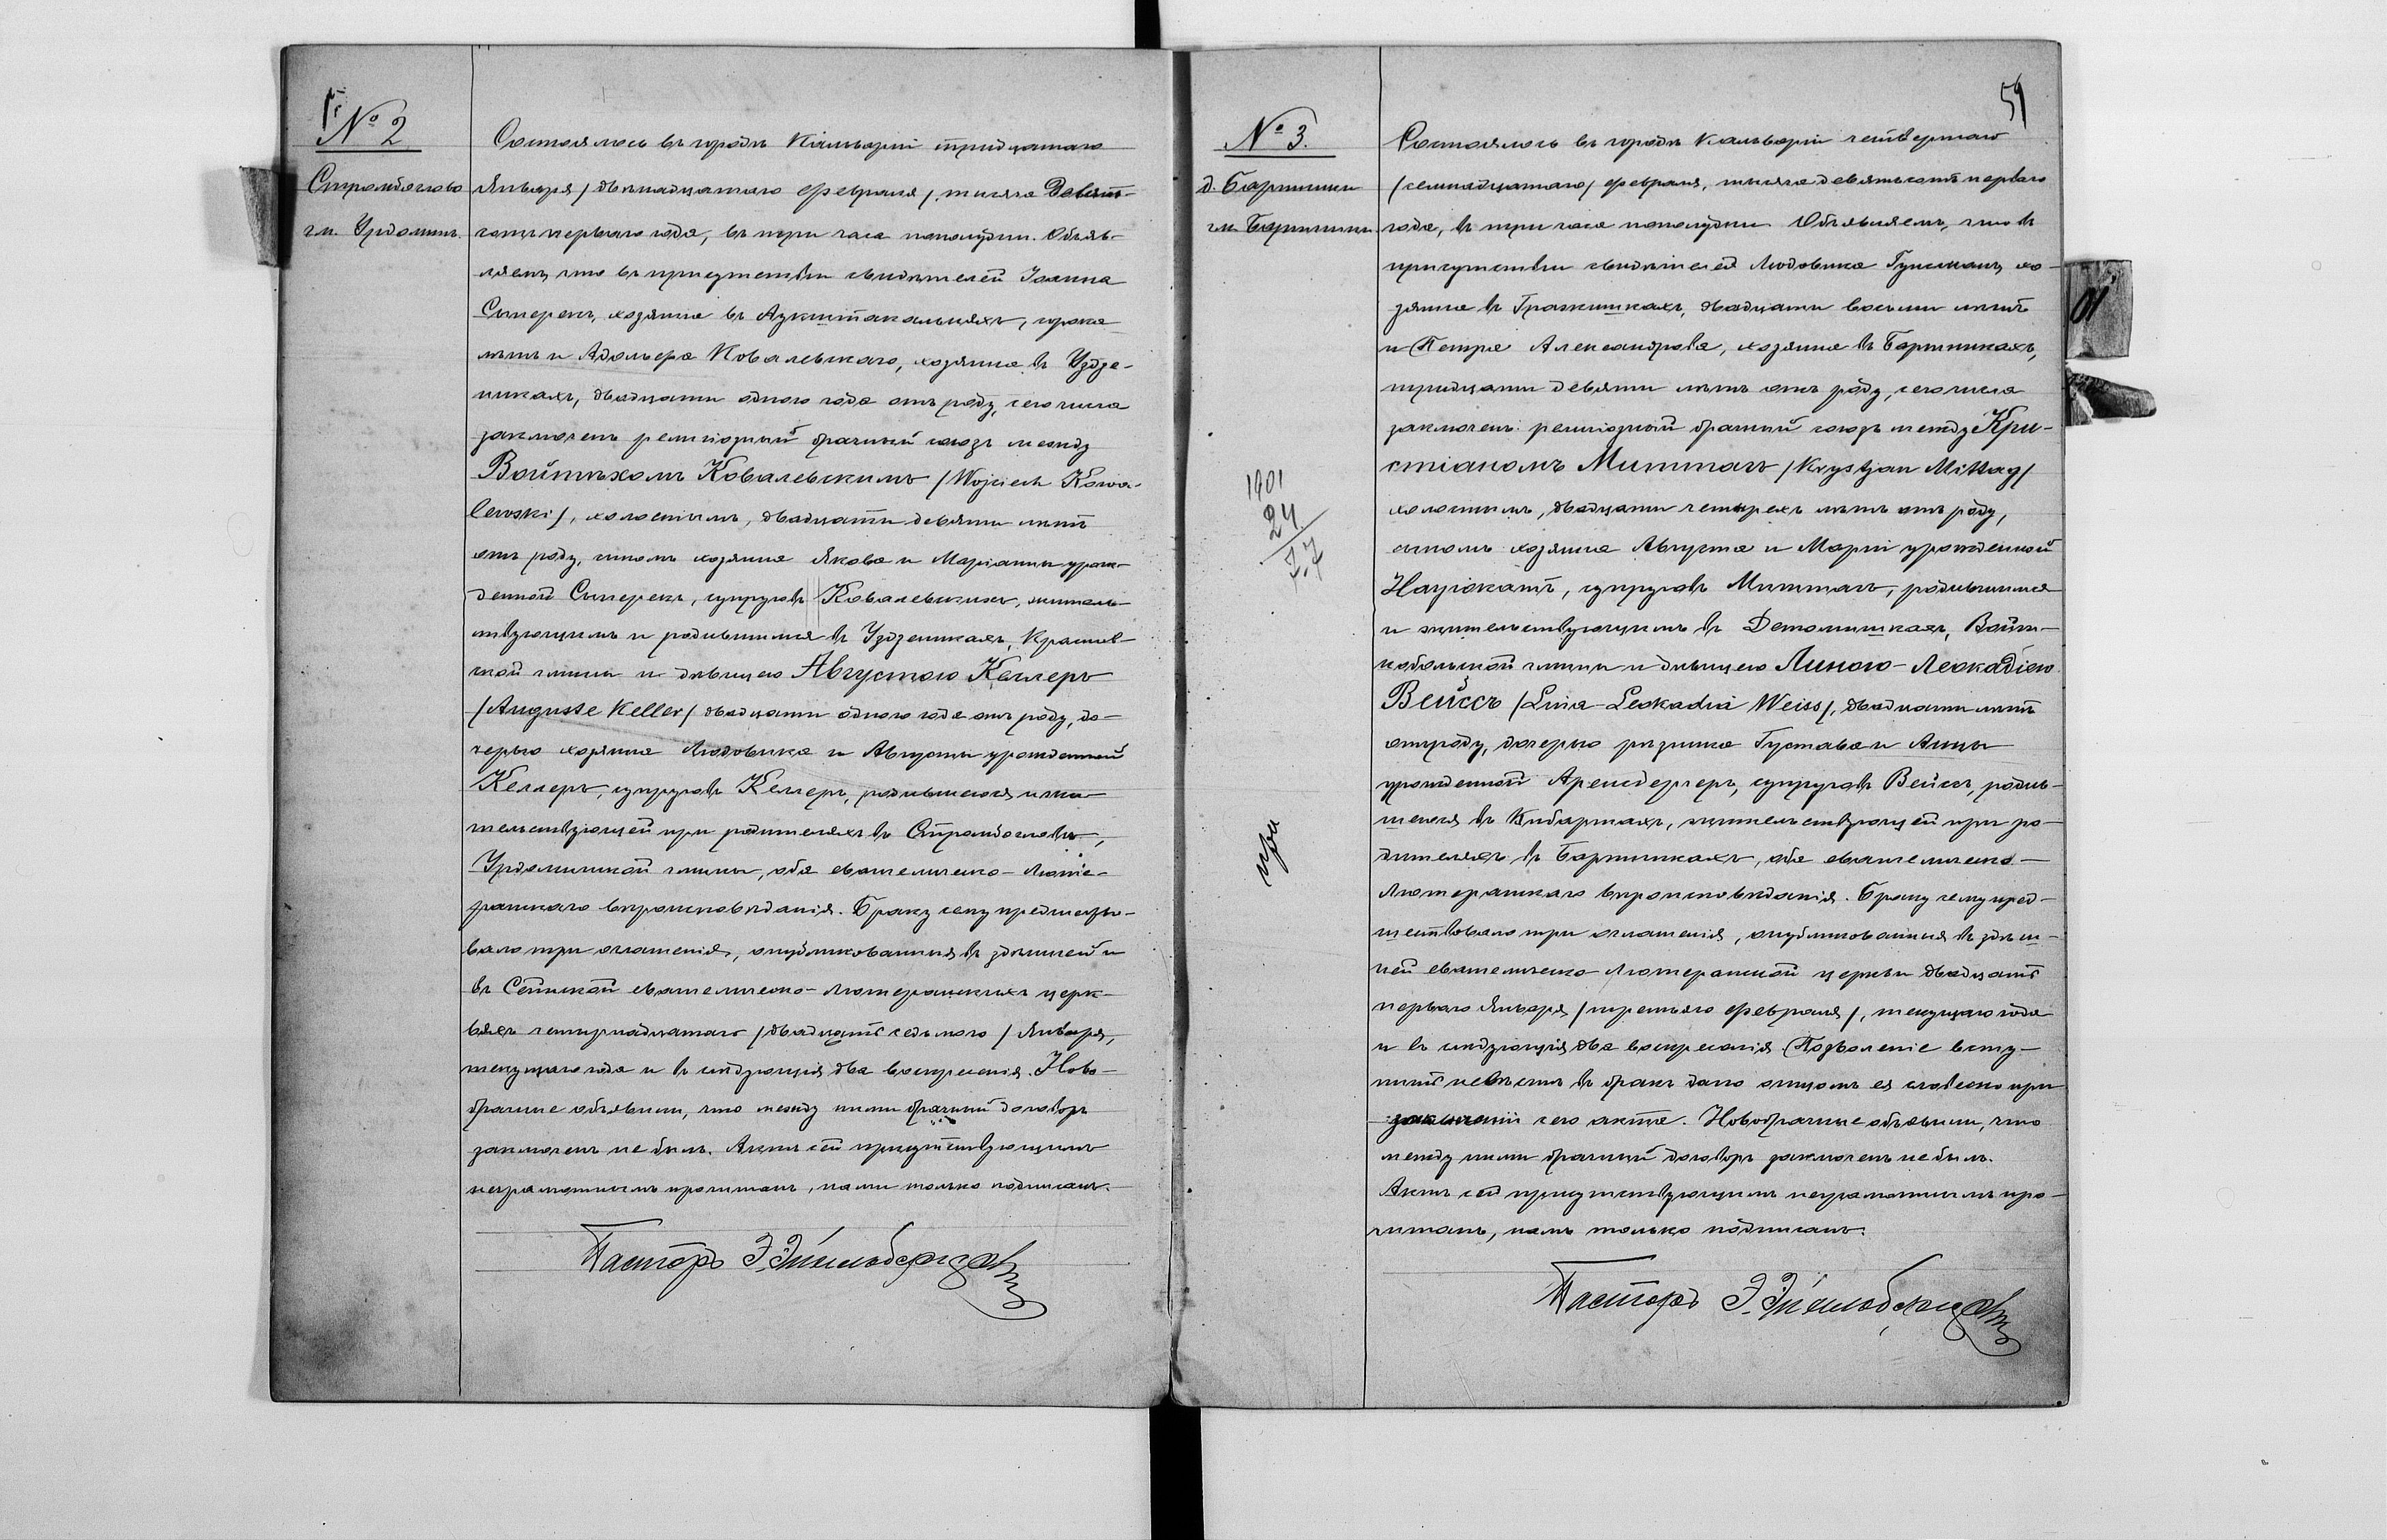 № 2
Стромбоглово
гм. Удромин.
Состоялось въ городѣ Кальваріи тридцатаго
Января /двѣнадцатаго февраля/ тысяча девять-
сотъ перваго года, въ три часа пополудни. Объяв-
ляемъ, что въ присутствіи свидѣтелей Іоанна
хозяина въ Аукштакальняхъ, сорока
лѣтъ и Адольфа Ковалевскаго, хозяина въ Уздзе-
никахъ, двадцати одного года отъ роду, сего числа
заключенъ религіозный брачный союзъ между
Войтѣхомъ Ковалевскимъ /Wojciech Kowa-
lewski/, холостымъ, двадцати девяти лѣтъ
отъ роду, сыномъ хозяина Якова и Маріанны урож-
денной супруговъ Ковалевскихъ, житель-
ствующимъ и родившимся въ Уздзеникахъ, Красног-
ской гмины и дѣвицею Августою Келлеръ
/Auguste Keller/ двадцати одного года отъ роду, до-
черью хозяина Людовика и Августы урожденной
Келлеръ, супруговъ Келлеръ, родившеюся и жи-
тельствующей при родителяхъ въ Стромбогловѣ,
Урдоминской гмины, оба евангелическо-люте-
ранскаго вѣроисповѣданія. Браку сему предшество-
вало три оглашенія, опубликованныя въ здѣшней и
въ Сейнской евангелическо-лютеранскихъ церк-
вяхъ четырнадцатаго /двадцать седьмого/ Января,
текущаго года и въ слѣдующія два воскресенія. Ново-
брачные объявили, что между ними брачный договоръ
заключенъ не былъ. Актъ сей присутствующимъ
неграмотнымъ прочитанъ, нами только подписанъ.
Пасторъ Э.
№ 3.
д. Бартники
гм. Бартники.
1901
24
при
59
01
Состоялось въ городѣ Кальваріи четвертаго
/семнадцатаго/ февраля, тысяча девятьсотъ перваго
года, въ три часа пополудни Объявляемъ, что въ
присутствіи свидѣтелей Людовика хо-
зяина въ Гражишкахъ, двадцати восьми лѣтъ
и Петра Александрова, хозяина въ Бартникахъ,
тридцати девяти лѣтъ отъ роду, сего числа
заключенъ религіозный брачный союзъ между Кри-
стіаномъ Миттагъ /Krystjan Mittag/
холостымъ, двадцати четырехъ лѣтъ отъ роду,
сыномъ хозяина Августа и Маріи урожденной
Науіокатъ, супруговъ Миттагъ, родившимся
и жительствующимъ въ Детомишкахъ, Войт-
кобольской гмины и дѣвицею Линою-Леокадіею
Вейссъ /Lina-Leokadia Weiss/, двадцати лѣтъ
отъ роду, дочерью рѣзника Густава и Анны
урожденной супруговъ Вейссъ, родив-
шеюся въ Кибартахъ, жительствующей при ро-
дителяхъ въ Бартникахъ, оба евангелическо-
лютеранскаго вѣроисповѣданія. Браку сему пред-
шествовало три оглашенія, опубликованныя въ здѣш-
ней евангелическо-лютеранской церкви двадцать
перваго Января /третьяго февраля/, текущаго года
и въ слѣдующія два воскресенія. Позволеніе всту-
пить невѣстѣ въ бракъ дано отцомъ ея словесно при
заключеніи сего акта. Новобрачные объявили, что
между ними брачный договоръ заключенъ не былъ.
Актъ сей присутствующимъ неграмотнымъ про-
читанъ, нами только подписанъ.
Пасторъ Э.